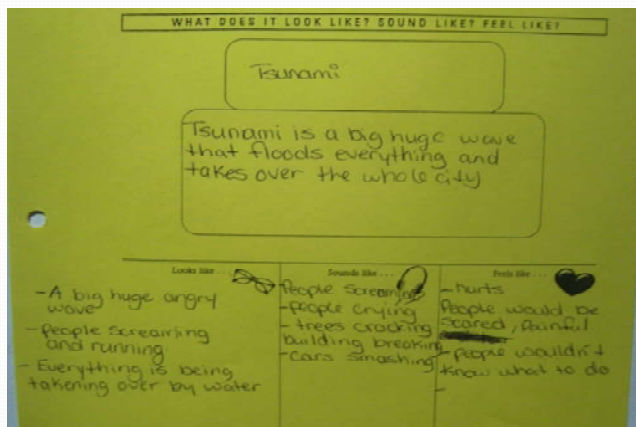 WHAT DOES IT LOOK LIKE? SOUND LIKE? FEEL LIKE?
Tsunami
Tsunami is a big huge wave
that floods everything and
takes over the whole city
Looks like...
- A big huge angry
wave
- People screaming
and running
- Everything is being
takening over by water
Sounds like...
- People screaming
- people crying
- trees cracking
building breaking
- Cars smashing
Feels like...
- hurts
People would be
scared, Painful
- people wouldn't
know what to do
-